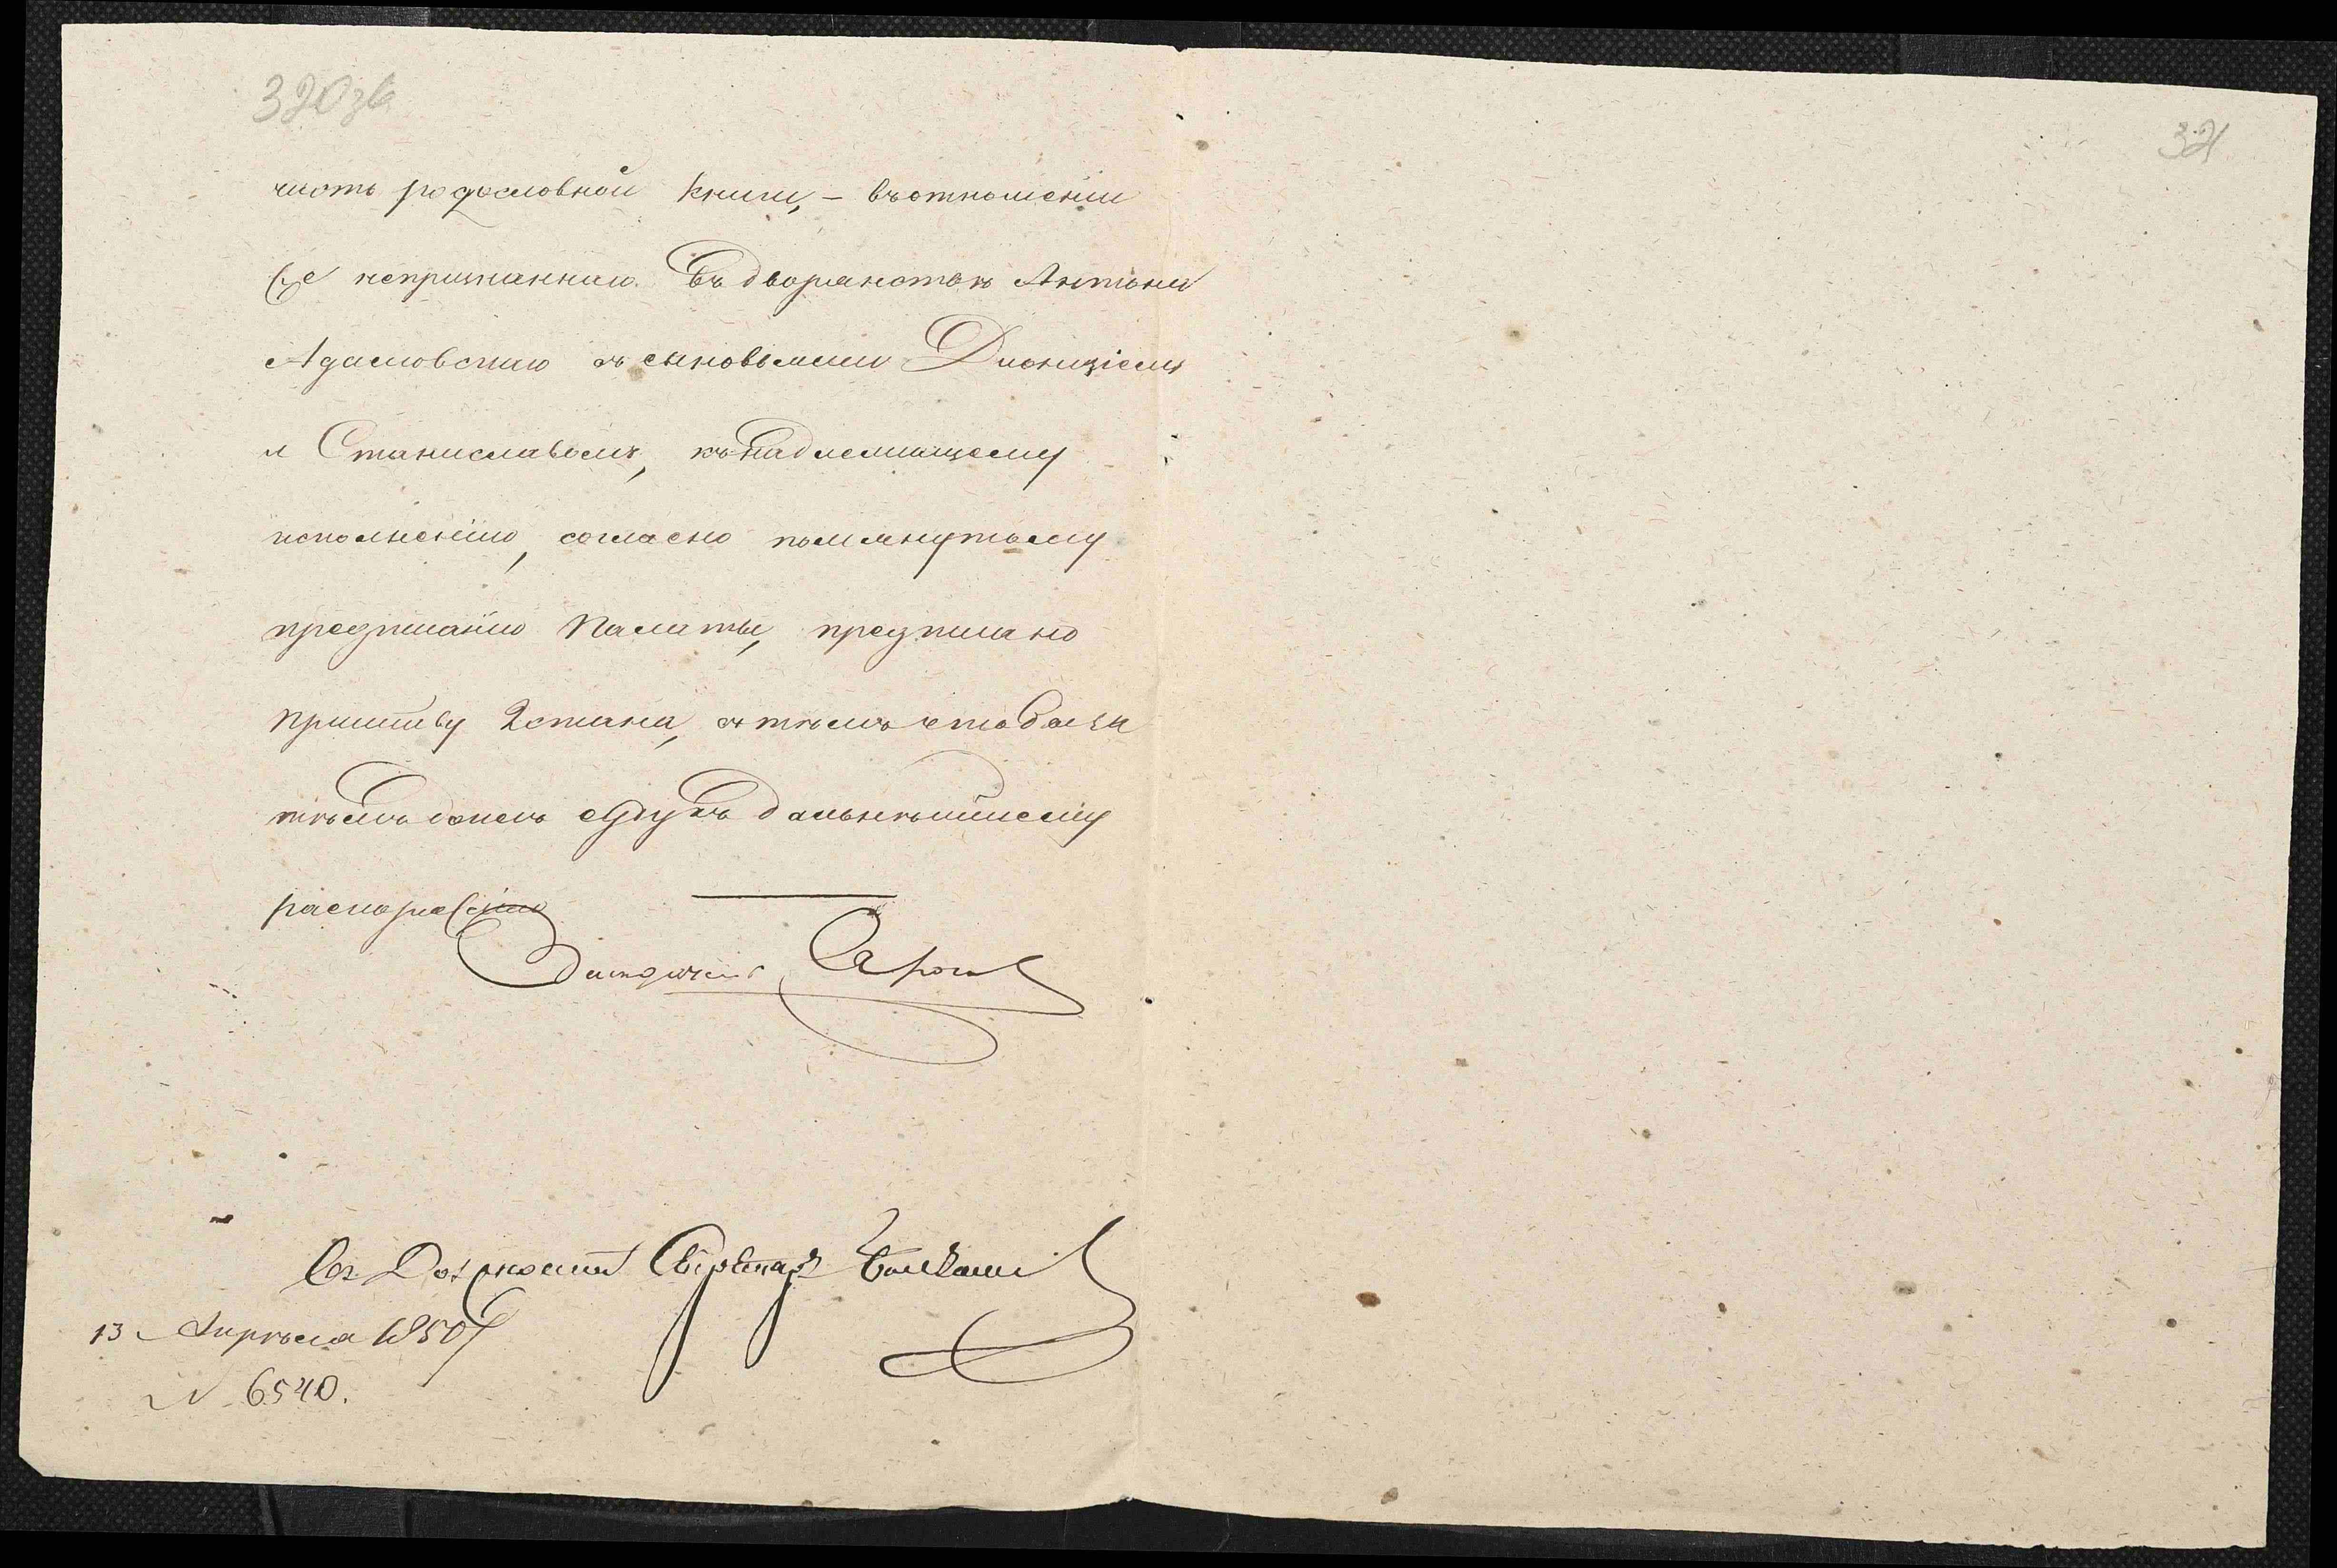 320зв
321
часть родословной книги, – въ отношеніи
же непризнанныхъ въ дворянствѣ Антона
Адамовскаго съ сыновьями Діонизіемъ
и Станиславомъ, къ надлежащему
исполненію, согласно помянутому
предписанію Палаты, предписано
приставу 2 стана, съ тѣмъ чтобы за
тѣмъ донесъ суду къ дальнѣйшему
распоряженію
Засѣдатель
Въ Должности Секретаря
13 Апрѣля 1850 г
N 6540.